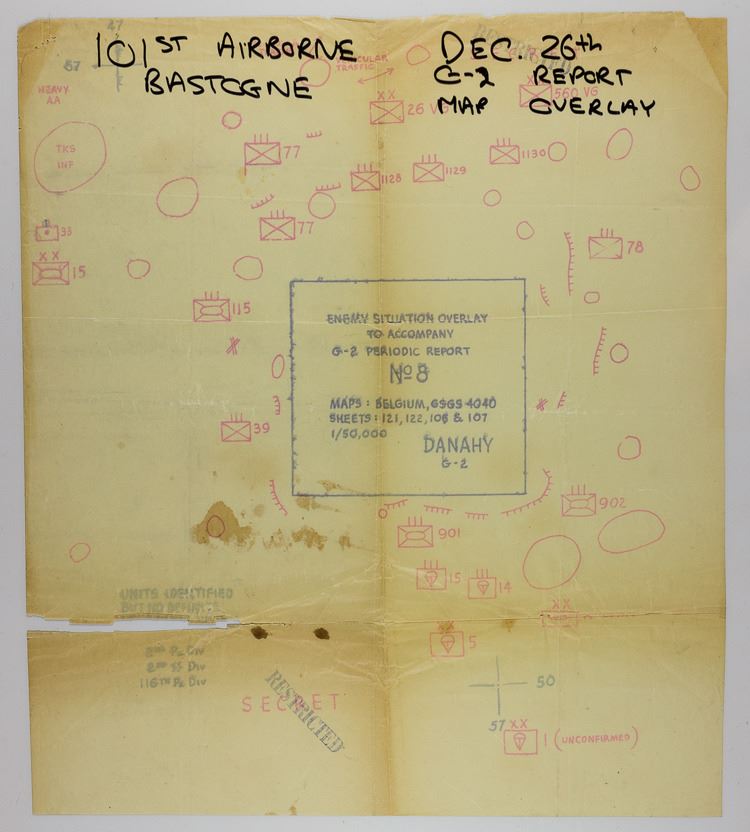 47
101ST AIRBORNE
BASTOGNE
DEC. 26th
G-2 REPORT
MAP OVERLAY
57
TRAFFIC
HEAVY
AA
26 VG
560 VG
TKS
INF
77
1128
1129
1130
33
77
78
15
115
ENEMY SITUATION OVERLAY
TO ACCOMPANY
G-2 PERIODIC REPORT
No 8
MAPS: BELGIUM, GSGS 4040
SHEETS: 121, 122, 106 & 107
1/50,000
DANAHY
G-2
39
902
901
15
14
UNITS IDENTIFIED
BUT NO DEFINITE
5
2ND Pz Div
2ND SS Div
116TH Pz Div
SECRET
RESTRICTED
50
57
1 (UNCONFIRMED)